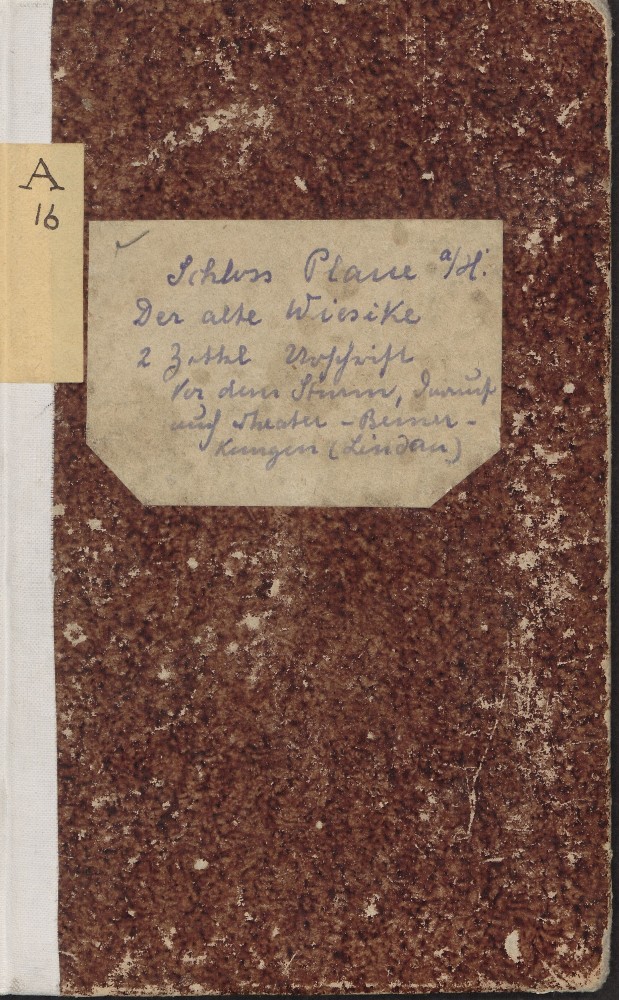 A
16
Schloss Plaue a/H.
Der alte Wiesike
2 Zettel Urschrift
Vor dem Sturm, darauf
auch Theater-Bemer-
kungen (Lindau)